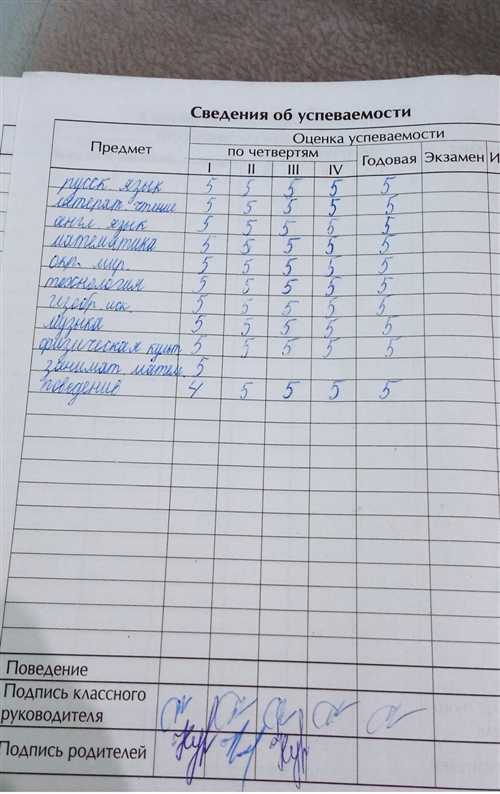 Сведения об успеваемости
Предмет Оценка успеваемости
по четвертям Годовая Экзамен И
I II III IV
русск язык 5 5 5 5 5
литерат. чтение 5 5 5 5 5
англ язык 5 5 5 5 5
математика 5 5 5 5 5
окр. мир. 5 5 5 5 5
технология 5 5 5 5 5
изобр. иск. 5 5 5 5 5
музыка 5 5 5 5 5
физическая культ 5 5 5 5 5
занимат. матем. 5
поведение 4 5 5 5 5
Поведение
Подпись классного
руководителя
Подпись родителей